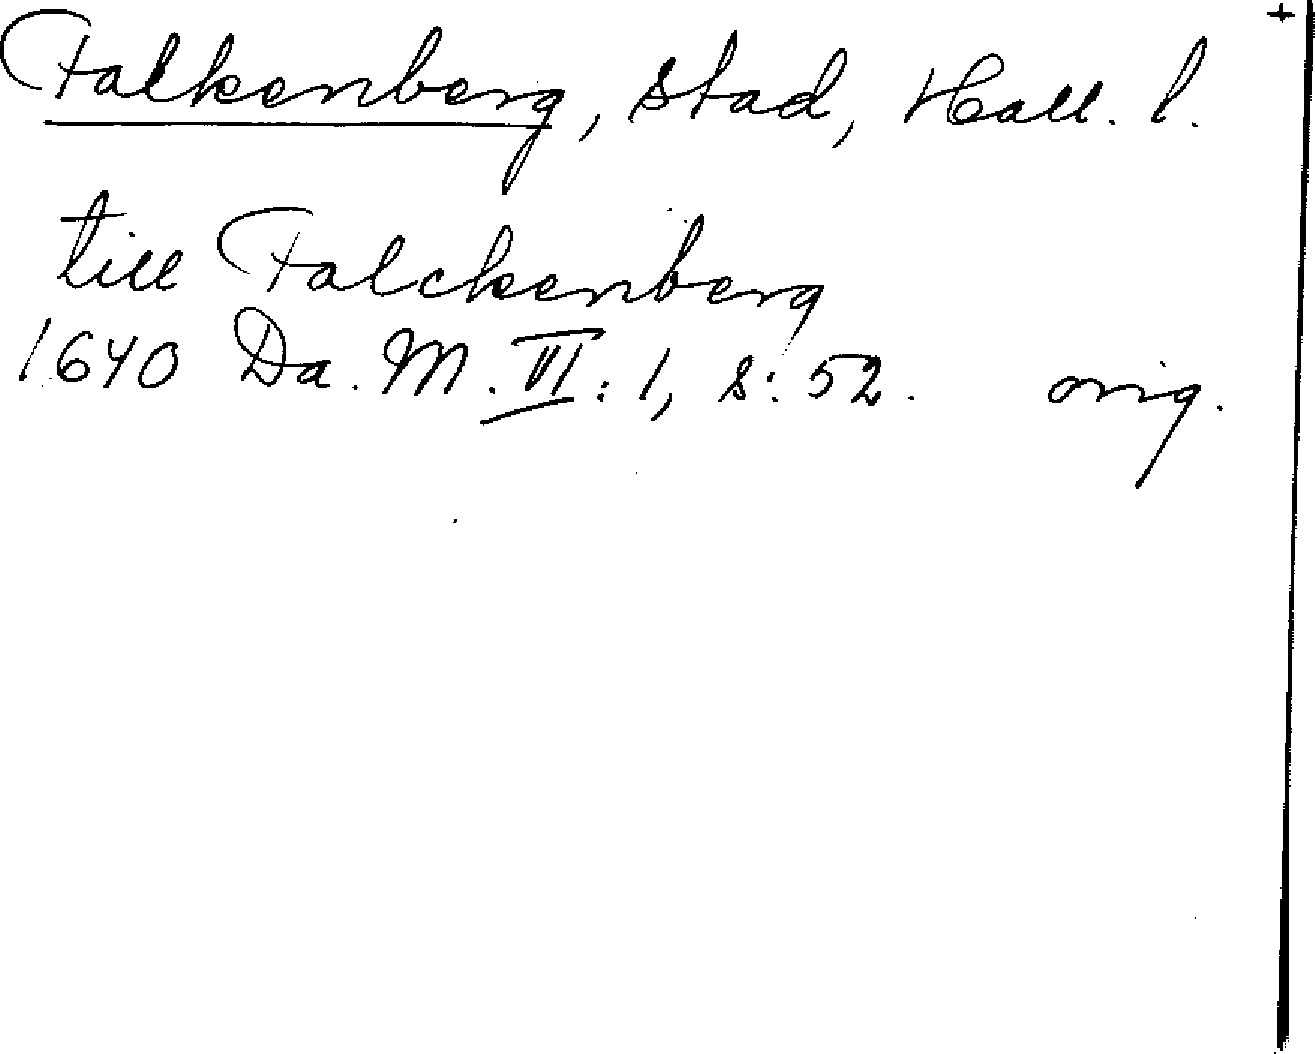 +
Falkenberg, stad, Hall. l.
till Falckenberg
1640 Da. M. VI: 1, s: 52. orig.